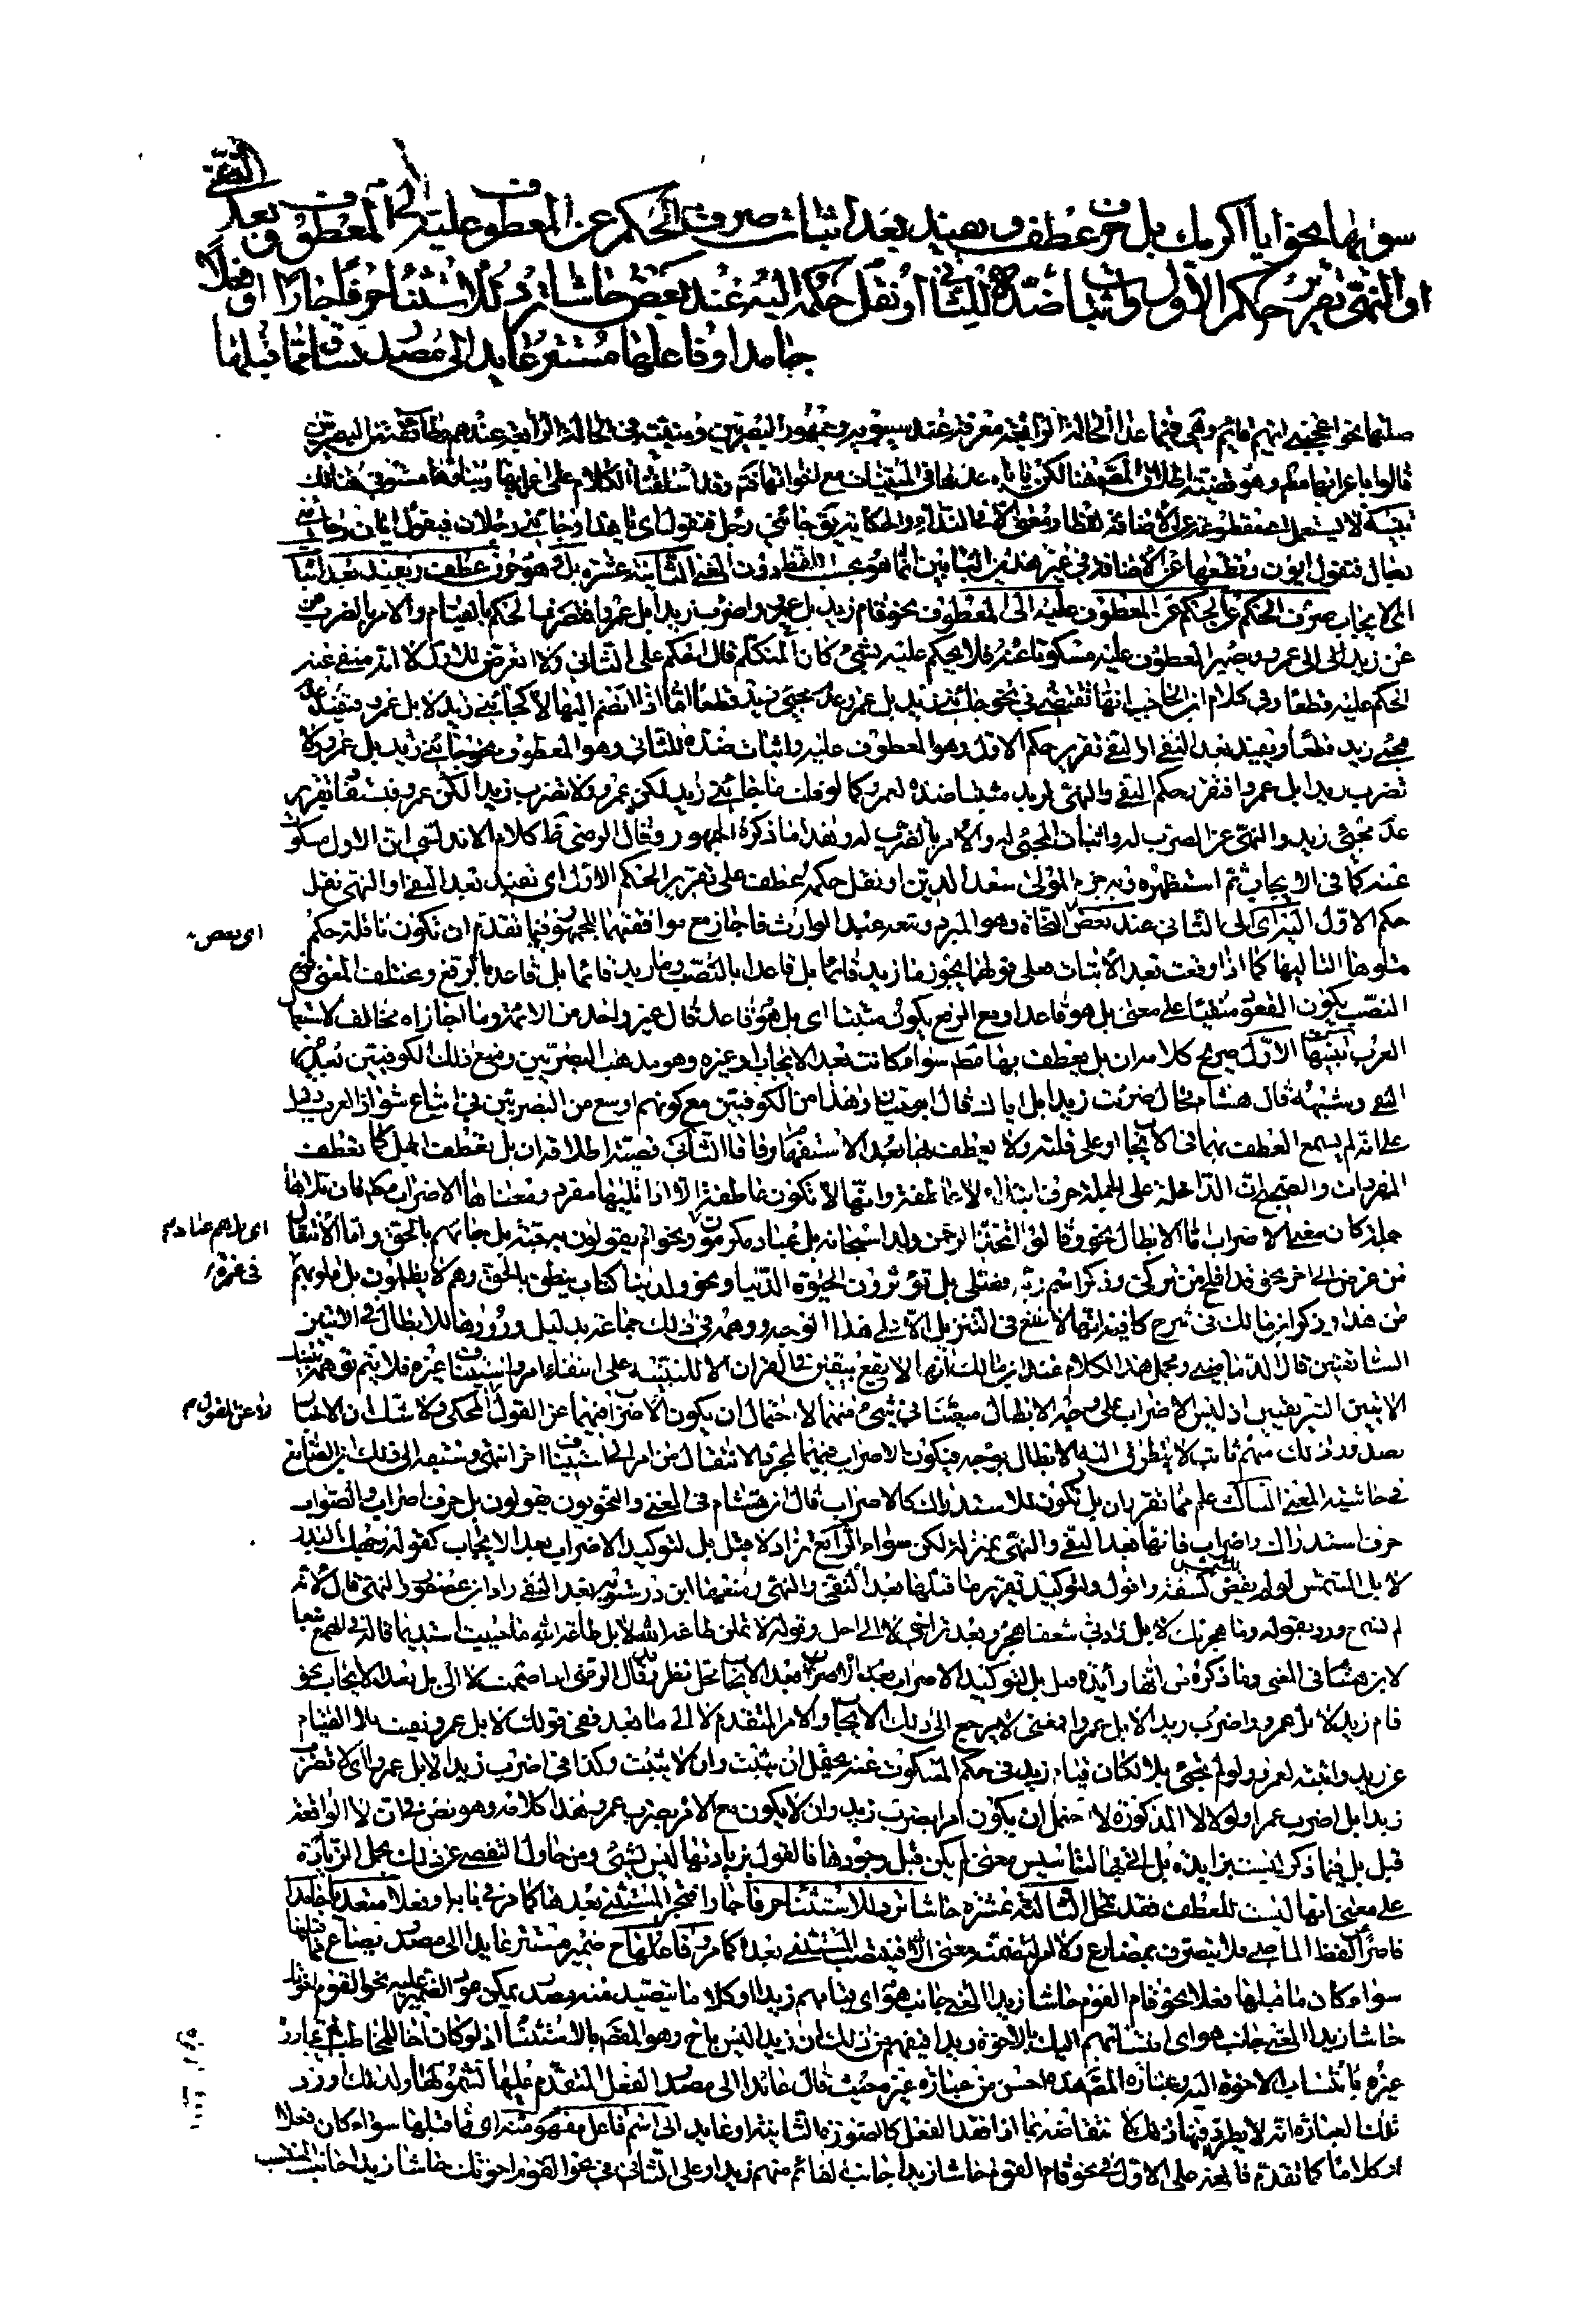 النفي
سواهما نحو ايا اكرمك بل حرف عطف ويفيد بعد اثبات صرف الحكم عن المعطوف عليه الى المعطوف وبعد
او النهي تقرير حكم الاول واثبات ضده للثاني او نقل حكمه اليه عند بعض حاشا ترد للاستثناء حرفا جارا او فعلا
جامدا وفاعلها مستتر عايد الى مصدر مما قبلها
صلتها نحو اعجبني ايهم قايم وهي فيما عدا الحالة الرابعة معرفة عند سيبويه وجمهور البصريين ومبنية في الحالة الرابعة عندهم طائفة من البصريين
قالوا باعرابها مطم وهو قضية اطلاق المصم هنا لكن ينافيه عدها في المبنيات مع اخواتها ثم وقد اسلفنا الكلام على اعرابها وبنائها مستوفى هنالك
تنبيه لا يستعمل مقطوعة عن الاضافة لفظا ومعنى الا في النداء والحكاية يقال جائني رجل فتقول اي يا هذا وجائني رجلان فيقول ايان وجائني
رجال فتقول ايون وقطعها عن الاضافة في غير هذين البابين انما هو بحسب اللفظ دون المعنى الثانية عشرة بل وهو حرف عطف ويفيد بعد اثبات
اي لا يجاب صرف الحكم عن المعطوف عليه الى المعطوف نحو قام زيد بل عمرو واضرب زيدا بل عمروا فتصرف الحكم بالقيام والامر بالضرب
عن زيد الى عمرو ويصير المعطوف عليه مسكوتا عنه فلا يحكم عليه بشيء كان المتكلم قال احكم على الثاني ولا اتعرض للاول لا انه منفي عنه
الحكم عليه قطعا وفي كلام ابن الحاجب انها تقتضي في نحو جائني زيد بل عمرو عدم مجيء زيد قطعا اما اذا انضم اليها لا كجائني زيد لا بل عمرو فتفيد عدم
مجيء زيد قطعا ويفيد بعد النفي او النهي تقرير حكم الاول وهو المعطوف عليه واثبات ضده للثاني وهو المعطوف نحو ما جائني زيد بل عمرو ولا
تضرب زيدا بل عمروا فتقرر حكم النفي والنهي لزيد مثبتا ضده لعمرو كما لو قلت ما جائني زيد لكن عمرو ولا تضرب زيدا لكن عمرو
عدم مجيء زيد والنهي عن الضرب له واثبات المجيء له والامر بالضرب له وهذا ما ذكره الجمهور وقال الرضي ظ كلام الاندلسي ان الاول مسكوت
عنه كما في الايجاب ثم استظهره وبه جزم المولى سعد الدين او نقل حكمه عطف على تقرير الحكم الاول اي تفيد بعد النفي او النهي نقل
حكم الاول اليه اي الى الثاني عند بعض النحاة وهو المبرد وتبعه عبد الوارث فاجاز مع موافقتهما للجمهور فيما تقدم ان تكون ناقلة حكم
اي بعض
متلوها التاليها كما اذا وقعت بعد الاثبات فعلى قولهما يجوز ما زيد قائما بل قاعدا بالنصب وما زيد قائما بل قاعد بالرفع ويختلف المعنى فمع
النصب يكون القعود منفيا على معنى بل هو قاعدا ومع الرفع يكون مثبتا اي بل هو قاعد قال غير واحد من الائمة وما اجازاه مخالف لاستعمال
العرب تنبيهات الاول صريح كلامه ان بل يعطف بها مطم سواء كانت بعد الايجاب او غيره وهو مذهب البصريين ومنع ذلك الكوفيين بعد غير
النفي وشبهه قال هشام محال ضربت زيدا بل اياك قال ابو حيان وهذا من الكوفيين مع كونهم اوسع من البصريين في اتباع شواذ العرب دليل
على انه لم يسمع العطف بها في الايجاب او على قلته ولا يعطف بها بعد الاستفهام وفاقا الثاني قضية اطلاقه ان بل تعطف الجمل كما تعطف
المفردات والصحيح ان الداخلة على الجملة حرف ابتداء لا عاطفة وانها لا تكون عاطفة الا اذا تليها مفرد ومعناها الاضراب مطم فان تلاها
جملة كان معنى الاضراب اما الابطال نحو وقالوا اتخذ الرحمن ولدا سبحانه بل عباد مكرمون ونحو ام يقولون به جنة بل جاءهم بالحق واما الانتقال
اي بل هم عباد
من غرض الى اخر نحو قد افلح من تزكى وذكر اسم ربه فصلى بل تؤثرون الحيوة الدنيا ونحو ولدينا كتاب ينطق بالحق وهم لا يظلمون بل قلوبهم
في غمرة
من هذا وذكر ابن مالك في شرح كافيته انها لا تقع في التنزيل الا على هذا الوجه ووهمه في ذلك جماعة بدليل ورودها للابطال في الايتين
السابقتين قال الدماميني ومحمل هذا الكلام عند ابن مالك انها لا يقع بيقين في القران الا للتنبيه على انتفاء امر واستيناف غيره فلا يتم توهمه
الايتين الشريفتين اذ ليس الاضراب على وجه الابطال متعينا في شيء منهما لاحتمال ان يكون الاضراب فيهما عن القول المحكي ولا شك ان الاخبار
لا عن المقول
بصدور ذلك منهم ثابت لا يتطرق اليه الابطال بوجه فيكون الاضراب فيهما لمجرد الانتقال من امر الى استيناف اخر انتهى وسبقه الى ذلك ابن الصايغ
في حاشية المغني الثالث علم مما تقرر ان بل تكون للاستدراك كالاضراب قال ابن هشام في المغني والنحويون يقولون بل حرف اضراب والصواب
حرف استدراك واضراب فانها بعد النفي والنهي بمنزلة لكن سواء الرابع تزاد لا قبل بل لتوكيد الاضراب بعد الايجاب كقوله وجهك البدر
لا بل الشمس لو لم يقض للشمس كسفة وافول ولتوكيد تقرير ما قبلها بعد النفي والنهي ومنعها ابن درستويه بعد النفي وزاد ابن عصفور والنهي قال لانه
لم يسمع ورد بقوله وما هجرتك لا بل زادني شغفا هجر وبعد تراخى لا الى اجل وقوله لا تملن طاعة الله لا بل طاعة الله ما حييت استديما قاله في الهمع تبعا
لابن هشام في المغني وما ذكره من انها زايدة قبل بل لتوكيد الاضراب بعد الايجاب محل نظر فقال الرضي اذا ضممت لا الى بل بعد الايجاب نحو
قام زيد لا بل عمرو واضرب زيدا لا بل عمروا فمعنى لا يرجع الى ذلك الايجاب والامر المتقدم لا الى ما بعد ففي قولك لا بل عمرو نفيت بلا القيام
عن زيد واثبته لعمرو ولو لم تجيء بلا لكان قيام زيد في حكم المسكوت عنه يحتمل ان يثبت وان لا يثبت وكذا في اضرب زيدا لا بل عمروا اي لا تضرب
زيدا بل اضرب عمرا ولولا لا المذكورة لاحتمل ان يكون امرا بضرب زيد وان لا يكون مع الامر بضرب عمرو هذا كلامه وهو نص في ان لا الواقعة
قبل بل فيما ذكر ليست بزايدة بل اتي بها لتاسيس معنى لم يكن قبل وجودها فالقول بزيادتها ليس بشيء ومن حاول التفصي عن ذلك بحمل الزيادة
على معنى انها ليست للعطف فقد تمحل الثالثة عشرة حاشا ترد للاستثناء حرفا جارا فتجر المستثنى بعدها كما مر في بابه او فعلا متعديا جامدا
قاصرا لفظ الماضي فلا يتصرف بمضارع ولا امر لتضمنه معنى الا فينصب المستثنى بعده كما مر وفاعلها ح ضمير مستتر عايد الى مصدر يصاغ مما قبلها
سواء كان ما قبلها فعلا نحو قام القوم حاشا زيدا المعنى جانب هو اي قيامهم زيدا او كلاما يتصيد منه مصدر يمكن عود الضمير عليه نحو القوم اخوتك
حاشا زيدا المعنى جانب هو اي انتسابهم اليك بالاخوة زيدا فيفهم من ذلك ان زيدا ليس باخ وهو المقصم بالاستثناء اذ لو كان اخا للمخاطب
غيره بانتساب الاخوة اليه وعبارة المصم هذه احسن من عبارة غيره حيث قال عائدا الى مصدر الفعل المتقدم عليها لشمولها ولذلك اورد
تلك العبارة انه لا يطرد فيها ذلك لا نتقاضه بما اذا فقد الفعل كالصورة الثانية او عايد الى اسم فاعل مفهوم منه اي مما قبلها سواء كان فعلا
او كلاما كما تقدم فالمعنى على الاول في نحو قام القوم حاشا زيدا جانب القائم منهم زيدا وعلى الثاني في نحو القوم اخوتك حاشا زيدا جانب المنتسب